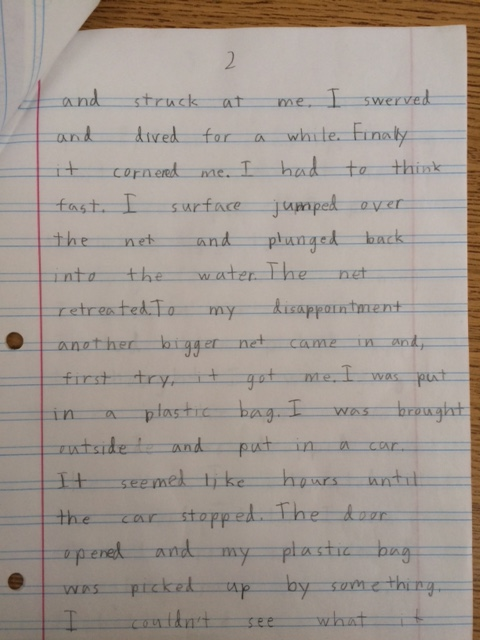 2
and struck at me. I swerved
and dived for a while. Finally
it cornered me. I had to think
fast. I surface jumped over
the net and plunged back
into the water. The net
retreated. To my disappointment
another bigger net came in and,
first try, it got me. I was put
in a plastic bag. I was brought
outside and put in a car.
It seemed like hours until
the car stopped. The door
opened and my plastic bag
was picked up by something.
I couldn't see what it